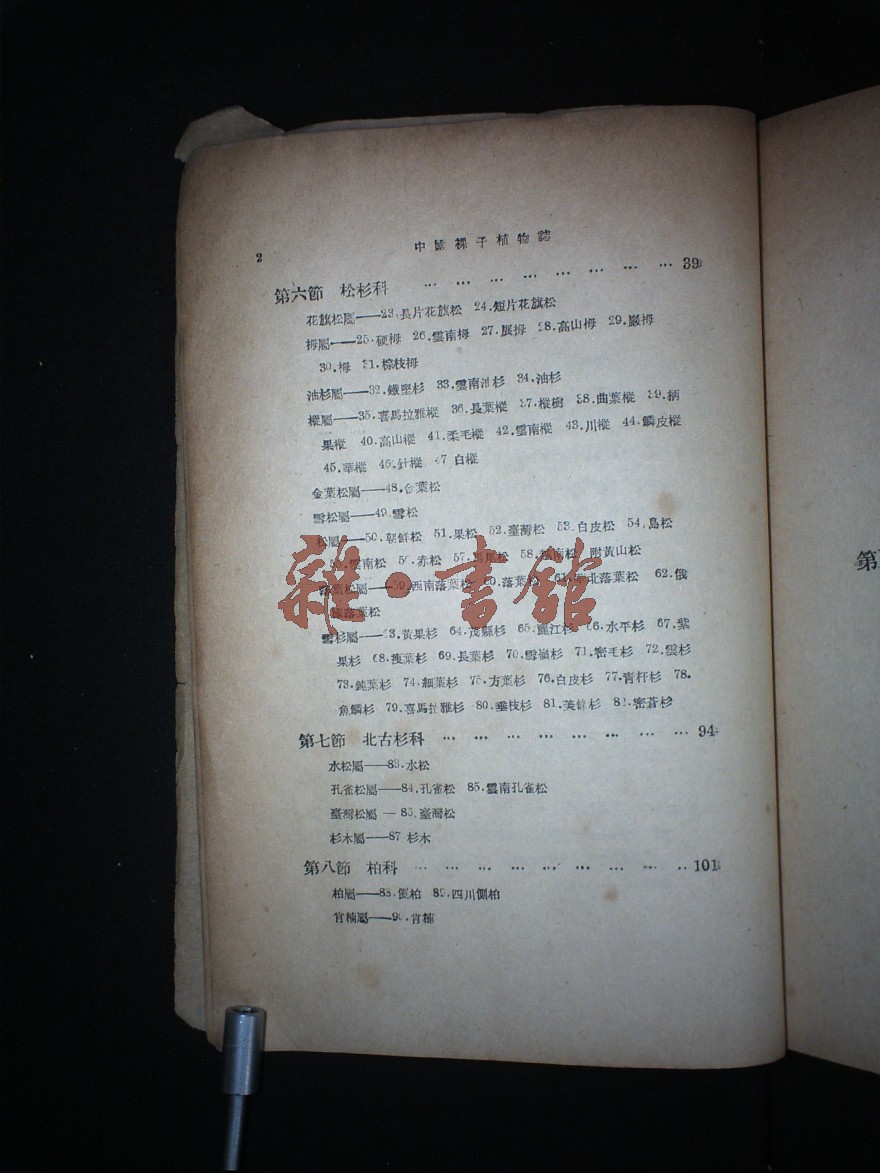 2
中國裸子植物誌
第六節 松杉科 … … … … … … … … 39
花旗松屬——23.長片花旗松 24.短片花旗松
栂屬——25.硬栂 26.雲南栂 27.展栂 28.高山栂 29.巖栂
30.栂 31.棕枝栂
油杉屬——32.鐵堅杉 33.雲南油杉 34.油杉
樅屬——35.喜馬拉雅樅 36.長葉樅 37.樅樹 38.曲葉樅 39.柄
果樅 40.高山樅 41.柔毛樅 42.雲南樅 43.川樅 44.鱗皮樅
45.華樅 46.針樅 47 白樅
金葉松屬——48.金葉松
雪松屬——49.雪松
松屬——50.朝鮮松 51.果松 52.臺灣松 53.白皮松 54.島松
55.雲南松 56.赤松 57.馬尾松 58.越南松 附黃山松
落葉松屬——59.西南落葉松 60.落葉松 61.華北落葉松 62.俄
國落葉松
雲杉屬——63.黃果杉 64.茂縣杉 65.麗江杉 66.水平杉 67.紫
果杉 68.短葉杉 69.長葉杉 70.雪嶺杉 71.密毛杉 72.雲杉
73.鈍葉杉 74.細葉杉 75.方葉杉 76.白皮杉 77.青杆杉 78.
魚鱗杉 79.喜馬拉雅杉 80.垂枝杉 81.芙蓉杉 82.密蒼杉
第七節 北古杉科 … … … … … … … … 94
水松屬——83.水松
孔雀松屬——84.孔雀松 85.雲南孔雀松
臺灣松屬—86.臺灣松
杉木屬——87 杉木
第八節 柏科 … … … … … … … … … 101
柏屬——88.側柏 89.四川側柏
肖楠屬——90.肖楠
第
雜·書館